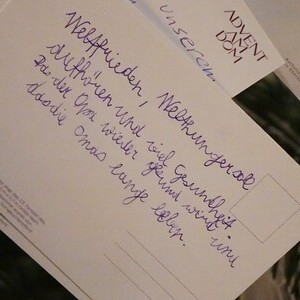 unserem
ADVENT
AM
DOM
Weltfrieden, Welthunger soll
aufhören und viel Gesundheit
Das der Opa wieder gesund wird und
das die Omas lange leben.